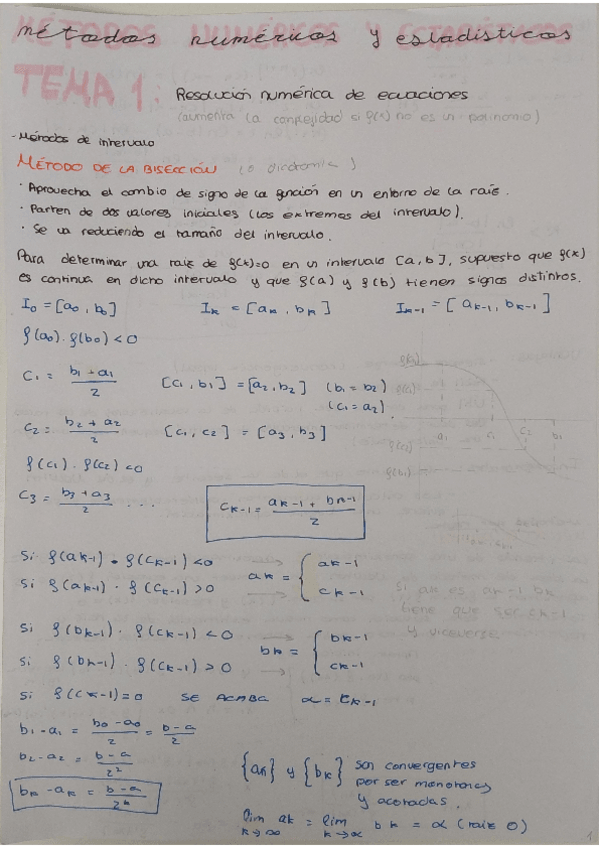 Métodos numéricos y estadísticos
TEMA 1: Resolución numérica de ecuaciones
(aumenta la complejidad si f(x) no es un polinomio)
- Métodos de intervalo
MÉTODO DE LA BISECCIÓN (o dicotomía)
· Aprovecha el cambio de signo de la función en un entorno de la raíz.
· Parten de dos valores iniciales (los extremos del intervalo).
· Se va reduciendo el tamaño del intervalo.
Para determinar una raíz de f(t)=0 en un intervalo [a,b], supuesto que f(x)
es continua en dicho intervalo y que f(a) y f(b) tienen signos distintos.
I₀ = [a₀, b₀] Iₖ = [aₖ, bₖ] Iₖ₋₁ = [aₖ₋₁, bₖ₋₁]
f(a₀)·f(b₀) < 0
C₁ = (b₁+a₁)/2 [c₁, b₁] = [a₂, b₂] (b₁ = b₂)
(c₁ = a₂)
C₂ = (b₂+a₂)/2 [c₁, c₂] = [a₃, b₃]
f(c₁)·f(c₂) < 0
a₁ c₁ c₂ b₁
C₃ = (b₃+a₃)/2 ... Cₖ₋₁ = (aₖ₋₁ + bₖ₋₁)/2
Si f(aₖ₋₁)·f(cₖ₋₁) < 0
Si f(aₖ₋₁)·f(cₖ₋₁) > 0
aₖ = { aₖ₋₁
cₖ₋₁
Si aₖ es aₖ₋₁ bₖ
tiene que ser cₖ₋₁
y viceversa
Si f(bₖ₋₁)·f(cₖ₋₁) < 0
Si f(bₖ₋₁)·f(cₖ₋₁) > 0
bₖ = { bₖ₋₁
cₖ₋₁
Si f(cₖ₋₁) = 0 SE ACABA α = cₖ₋₁
b₁-a₁ = (b₀-a₀)/2 = (b-a)/2
b₂-a₂ = (b-a)/2²
bₖ-aₖ = (b-a)/2ᵏ
{aₖ} y {bₖ} son convergentes
por ser monótonas
y acotadas.
lim k→∞ aₖ = lim k→∞ bₖ = α (raíz 0)
1